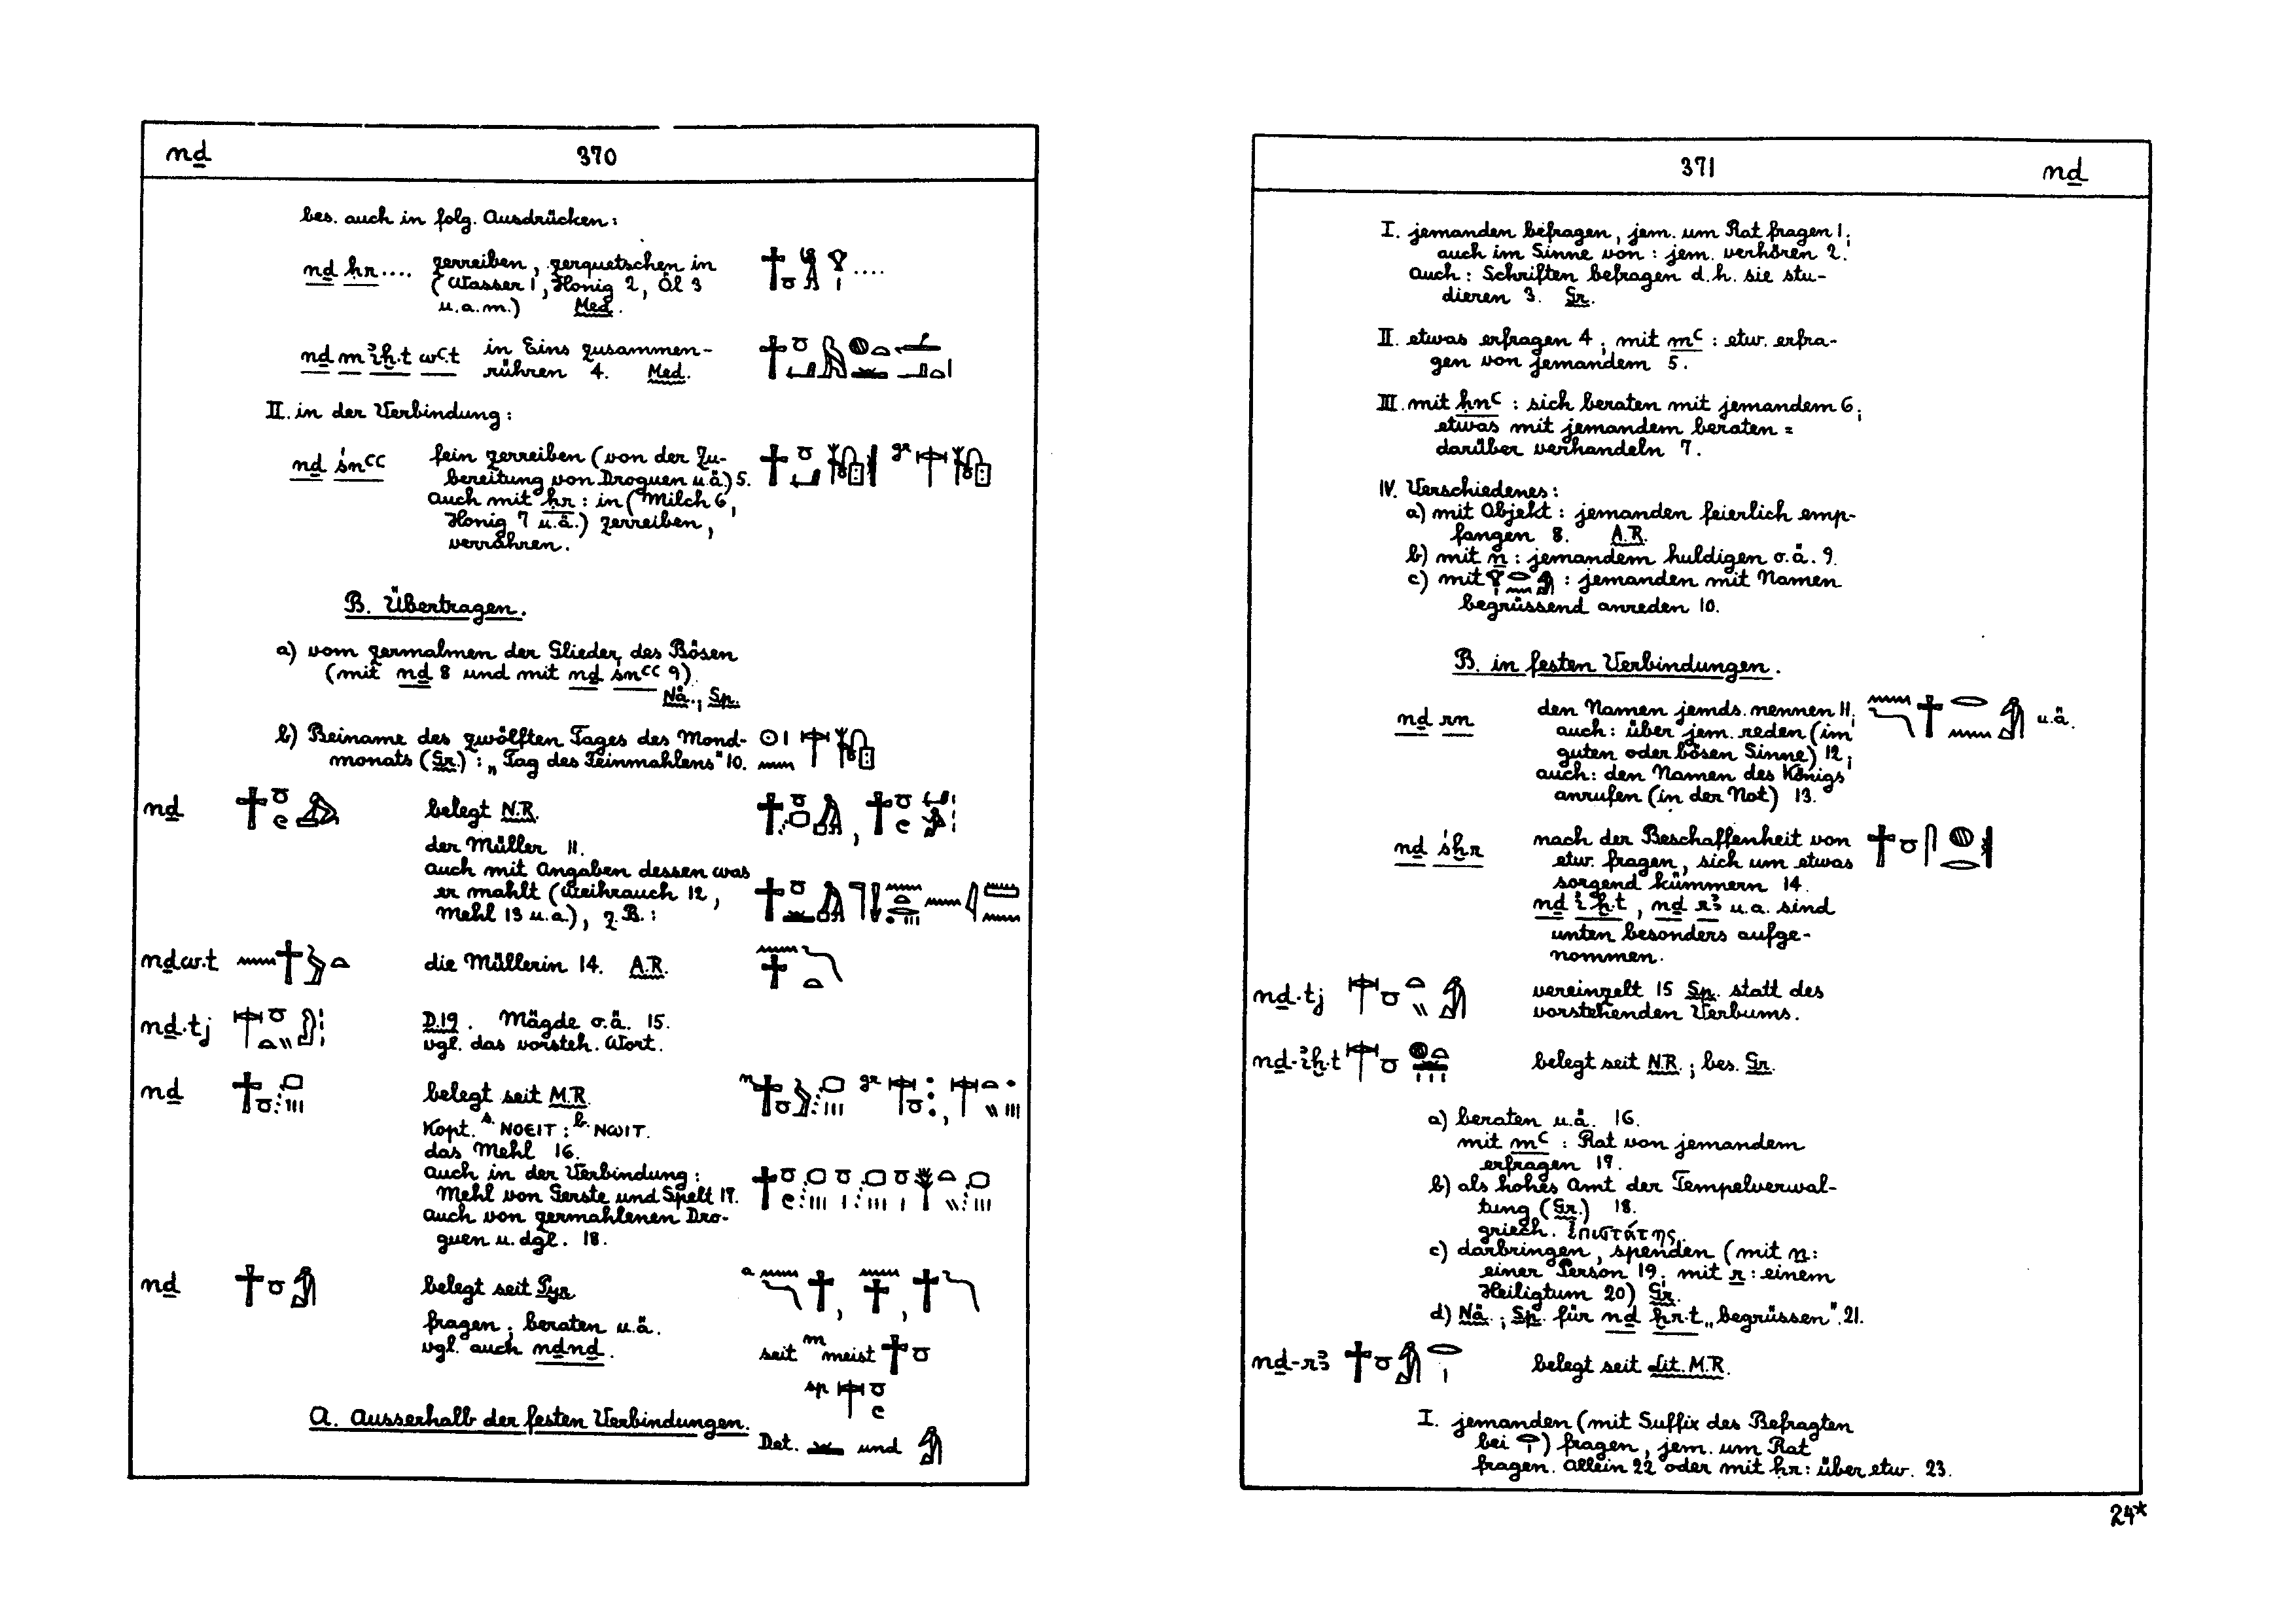 nḏ 370
bes. auch in folg. Ausdrücken:
nḏ ḥr.... zerreiben, zerquetschen in
(Wasser 1, Honig 2, Öl 3
u.a.m.) Med.
nḏ m ꜣḫ.t wꜥ.t in Eins zusammen-
rühren 4. Med.
II. in der Verbindung:
nḏ śnꜥꜥ fein zerreiben (von der Zu-
bereitung von Droguen u.ä.) 5.
Auch mit ḥr: in (Milch 6,
Honig 7 u.ä.) zerreiben,
verrühren.
B. Übertragen.
a) vom zermalmen der Glieder des Bösen
(mit nḏ 8 und mit nḏ śnꜥꜥ 9).
Nä.; Sp.
b) Beiname des zwölften Tages des Mond-
monats (Gr.): „Tag des Feinmahlens" 10.
nḏ belegt N.R.
der Müller 11.
auch mit Angaben dessen was
er mahlt (Weihrauch 12,
Mehl 13 u.a.), z.B.:
nḏw.t die Müllerin 14. A.R.
nḏ.tj D.19. Mägde o.ä. 15.
vgl. das vorsteh. Wort.
nḏ belegt seit M.R.
Kopt. s. ⲛⲟⲉⲓⲧ : b. ⲛⲱⲓⲧ.
das Mehl 16.
auch in der Verbindung:
Mehl von Gerste und Spelt 17.
auch von zermahlenen Dro-
guen u. dgl. 18.
nḏ belegt seit Pyr.
fragen; beraten u.ä.
vgl. auch nḏnḏ.
seit m meist
sp
A. Ausserhalb der festen Verbindungen.
Det. und
371 nḏ
I. jemanden befragen, jem. um Rat fragen 1;
auch im Sinne von: jem. verhören 2.
Auch: Schriften befragen d.h. sie stu-
dieren 3. Gr.
II. etwas erfragen 4; mit mꜥ: etw. erfra-
gen von jemandem 5.
III. mit ḥnꜥ: sich beraten mit jemandem 6;
etwas mit jemandem beraten =
darüber verhandeln 7.
IV. Verschiedenes:
a) mit Objekt: jemanden feierlich emp-
fangen 8. A.R.
b) mit n: jemandem huldigen o.ä. 9.
c) mit : jemanden mit Namen
begrüssend anreden 10.
B. in festen Verbindungen.
nḏ rn den Namen jemds. nennen 11;
auch: über jem. reden (im
guten oder bösen Sinne) 12;
auch: den Namen des Königs
anrufen (in der Not) 13.
u.ä.
nḏ śḫr nach der Beschaffenheit von
etw. fragen, sich um etwas
sorgend kümmern 14.
nḏ ꜣḫ.t, nḏ rꜣ u.a. sind
unten besonders aufge-
nommen.
nḏ.tj vereinzelt 15 Sp. statt des
vorstehenden Verbums.
nḏ-ꜣḫ.t belegt seit N.R.; bes. Gr.
a) beraten u.ä. 16.
mit mꜥ: Rat von jemandem
erfragen 17.
b) als hohes Amt der Tempelverwal-
tung (Gr.) 18.
griech. ἐπιστάτης.
c) darbringen, spenden (mit n:
einer Person 19; mit r: einem
Heiligtum 20) Gr.
d) Nä.; Sp. für nḏ ḥr.t „begrüssen". 21.
nḏ-rꜣ belegt seit Lit. M.R.
I. jemanden (mit Suffix des Befragten
bei ) fragen, jem. um Rat
fragen. Allein 22 oder mit ḥr: über etw. 23.
24*